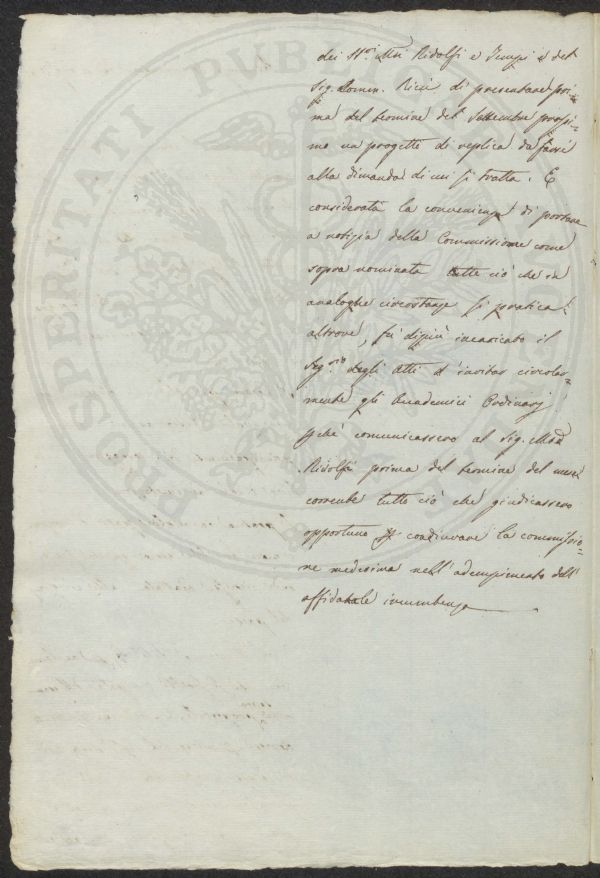 dei SS.ri Mri Ridolfi e Tempi e del
Sig. Domen. Ricci di presentare pri=
ma del termine del Settembre prossi=
mo un progetto di replica da farsi
alla dimanda di cui si tratta. E
considerata la convenienza di portare
a notizia della Commissione come
sopra nominata tutto ciò che in
analoghe circostanze si pratica
altrove, fù di più incaricato il
Seg.rio degli Atti d'invitar circolar=
mente gli Accademici Ordinarj
perchè comunicassero al Sig. March.
Ridolfi prima del termine del mese
corrente tutto ciò che giudicassero
opportuno per coadiuvare la commissio=
ne medesima nell'adempimento dell'
affidatale incumbenza
PROSPERITATI PUBLICAE